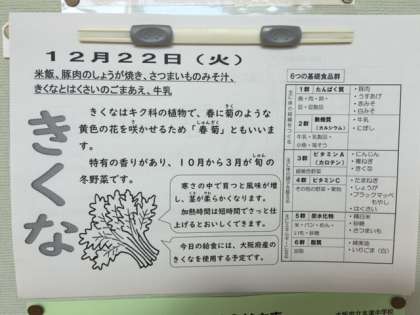 12月22日（火）
米飯、豚肉のしょうが焼き、さつまいものみそ汁、
きくなとはくさいのごまあえ、牛乳
きくな
きくなはキク科の植物で、春に菊のような
黄色の花を咲かせるため「春菊」ともいいま
す。
特有の香りがあり、10月から3月が旬の
冬野菜です。
寒さの中で育つと風味が増
し、茎が柔らかくなります。
加熱時間は短時間でさっと仕
上げるとおいしくできます。
今日の給食には、大阪府産の
きくなを使用する予定です。
6つの基礎食品群
1群 たんぱく質
魚・肉・卵・
豆・豆製品
・豚肉
・うすあげ
・赤みそ
・白みそ
2群 無機質
（カルシウム）
牛乳・乳製品・
小魚・海そう
・牛乳
・にぼし
3群 ビタミンA
（カロテン）
緑黄色野菜
・にんじん
・青ねぎ
・きくな
4群 ビタミンC
その他の野菜・果物
・たまねぎ
・しょうが
・ブラックマッペ
もやし
・はくさい
5群 炭水化物
米・パン・めん・
いも・砂糖
・精白米
・砂糖
・さつまいも
6群 脂質
油脂
・綿実油
・いりごま（白）